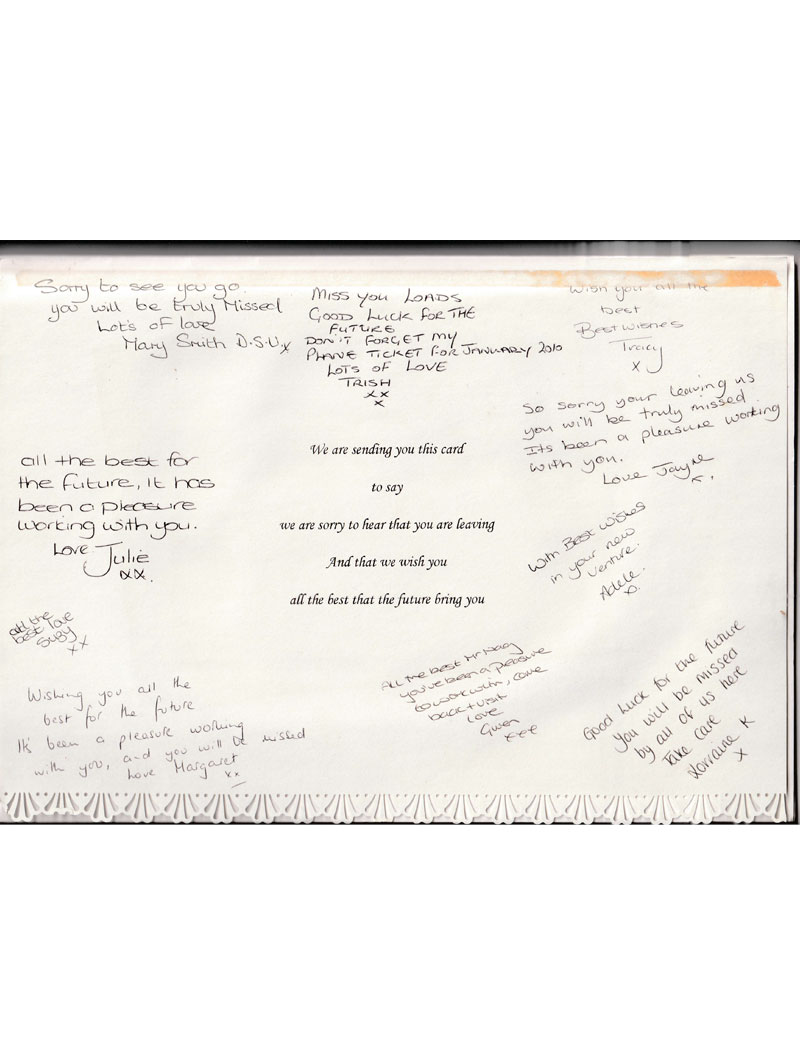 Sorry to see you go.
you will be truly Missed
Lot's of love
Mary Smith D.S.U. x
MISS YOU LOADS
GOOD LUCK FOR THE
FUTURE
DON'T FORGET MY
PLANE TICKET FOR JANUARY 2010
LOTS OF LOVE
TRISH
xx
x
Wish you all the
best
Best wishes
Tracy
x
So sorry your leaving us
you will be truly missed.
Its been a pleasure working
with you.
Love Jayne
x.
all the best for
the future, it has
been a pleasure
working with you.
Love Julie
xx.
We are sending you this card
to say
we are sorry to hear that you are leaving
And that we wish you
all the best that the future bring you
With Best Wishes
in your new
venture.
Adele.
x.
all the
best love
Suzy
xx
Wishing you all the
best for the future
It's been a pleasure working
with you, and you will be missed
Love Margaret
xx
All the best Mr
you've been a pleasure
to work with, come
back + visit
Love
Gwen
xxx
Good Luck for the future
You will be missed
by all of us here
Take care
Lorraine K
x